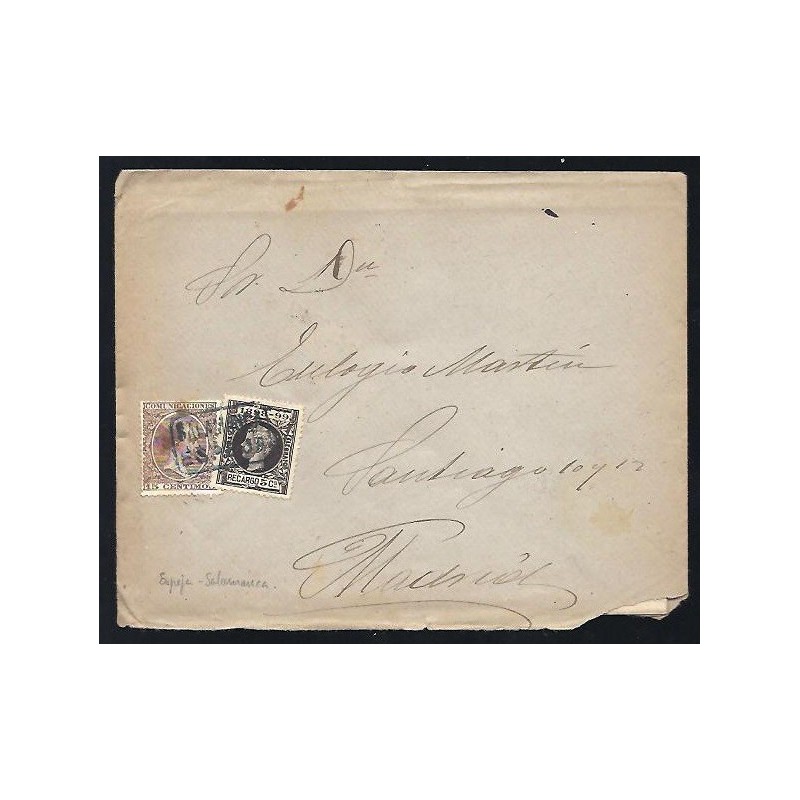 Sr. Dn
Eulogio Martín
Santiago 10 y 12
Madrid
COMUNICACIONES
15 CENTIMOS
1898-99
RECARGO 5 Cs
Espeja - Salamanca.